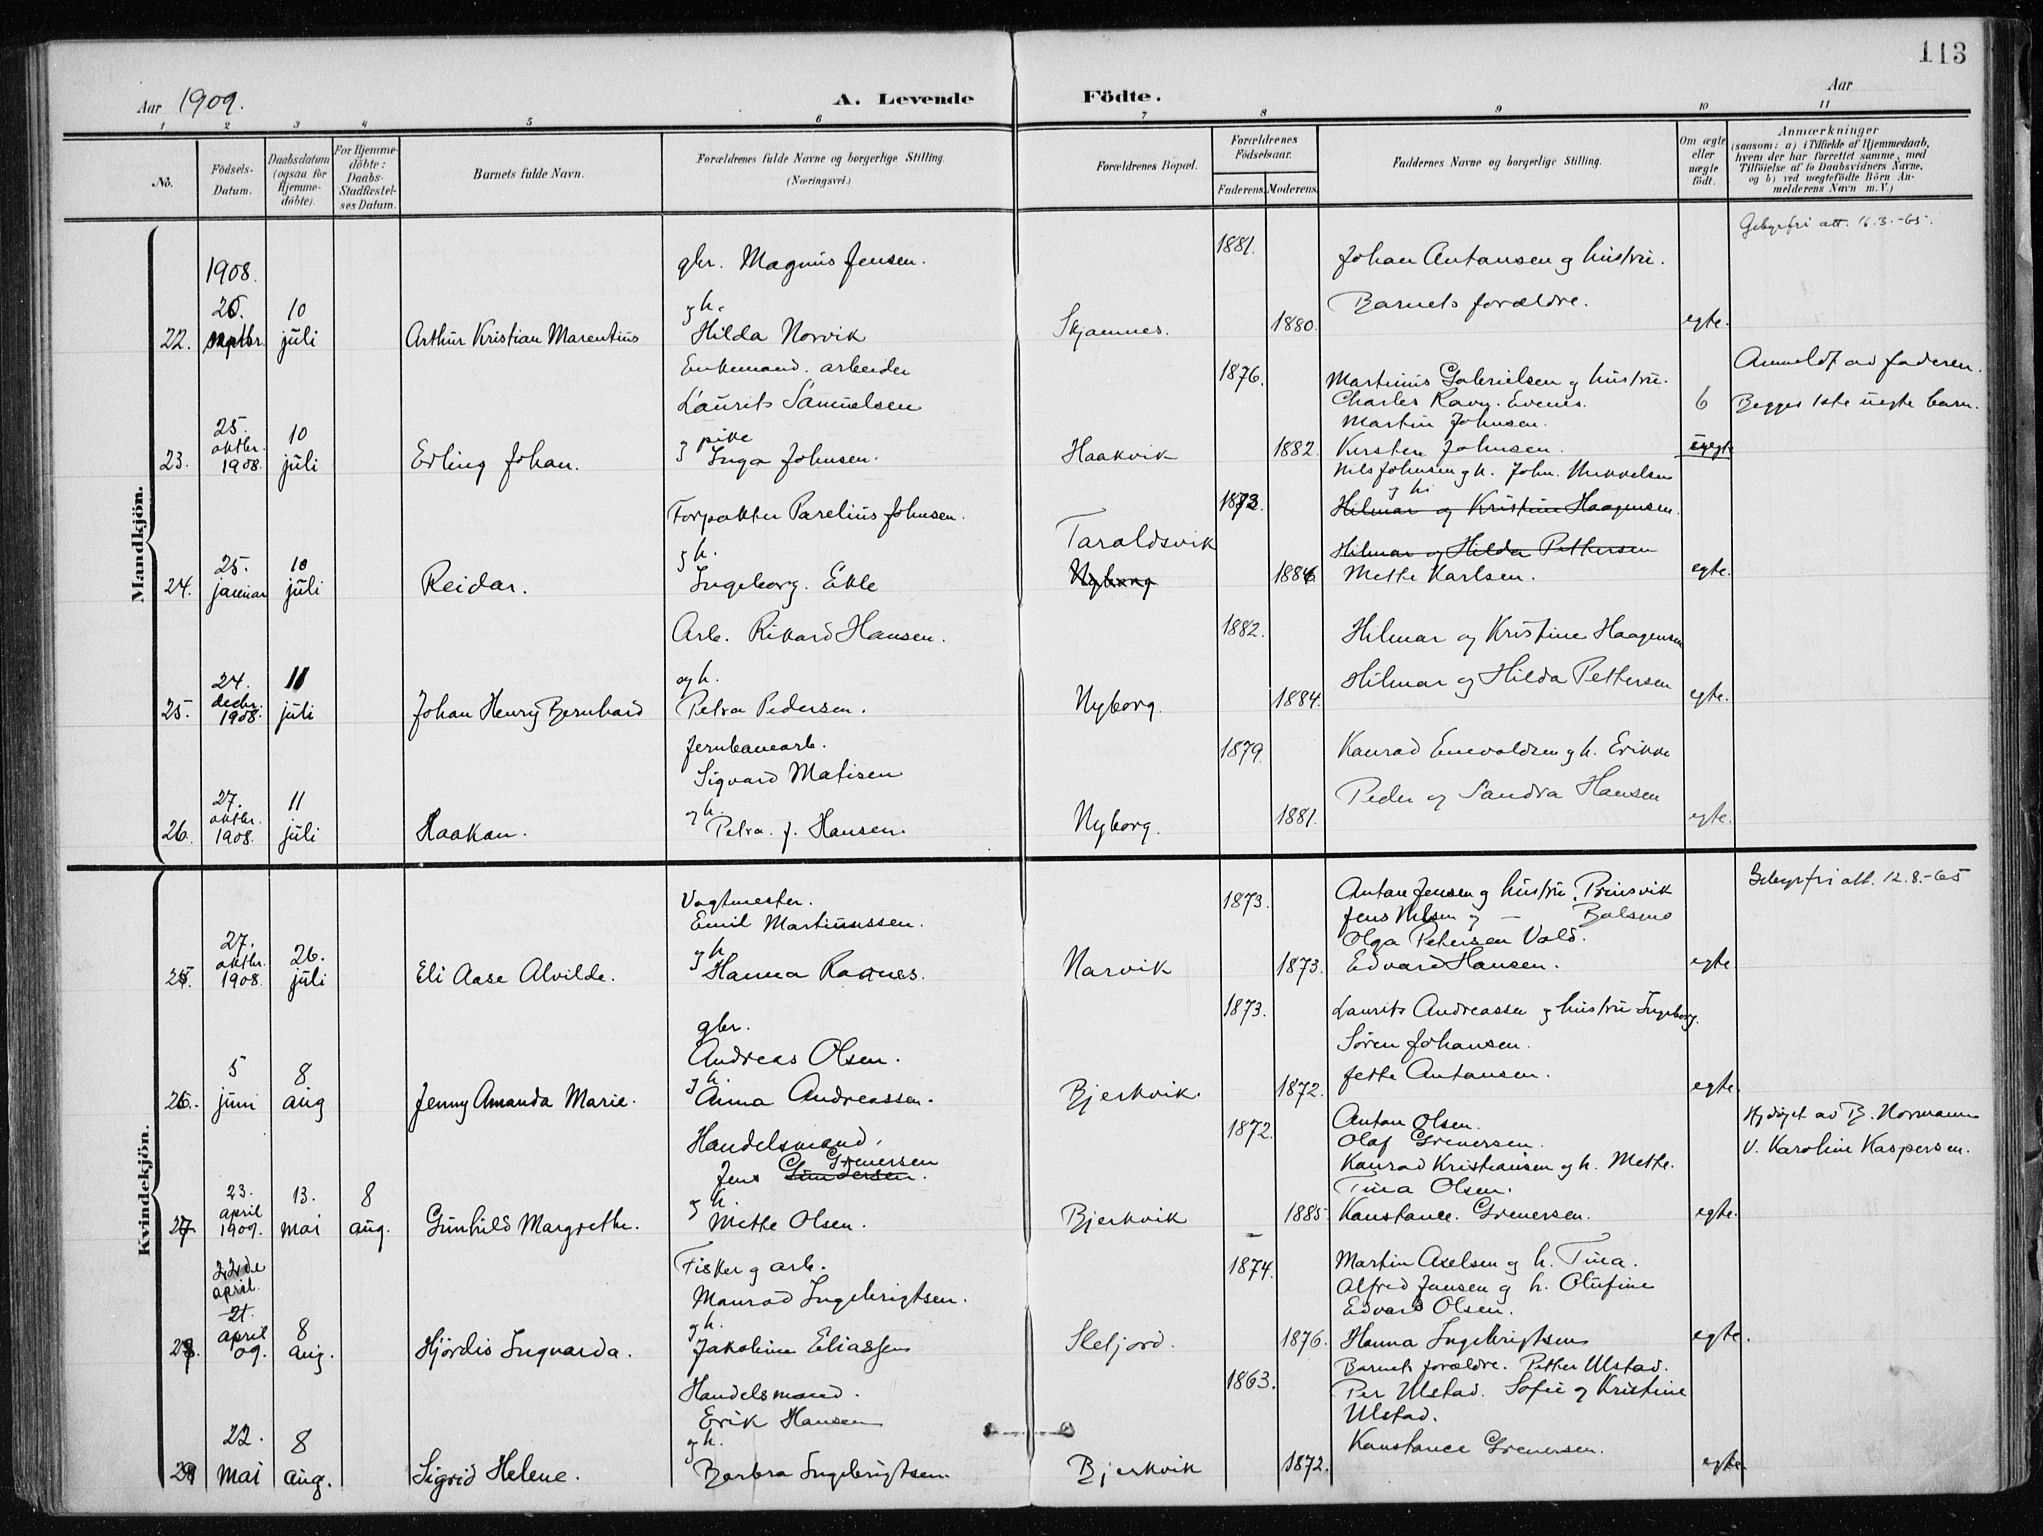 113
Aar 1909.
A. Levende Födte.
Aar
1 2 3 4 5 6 7 8 9 10 11
No.
Födsels-
Datum.
Daabsdatum
(ogsaa for
Hjemme-
döbte).
For Hjemme-
döbte:
Daabs-
Stadfæstel-
ses Datum.
Barnets fulde Navn.
Forældrenes fulde Navne og borgerlige Stilling.
(Næringsvei.)
Forældrenes Bopæl.
Forældrenes
Födselsaar.
Faderens. Moderens.
Faddernes Navne og borgerlige Stilling.
Om ægte
eller
uægte
födt.
Anmærkninger
(saasom: a) i Tilfælde af Hjemmedaab,
hvem der har forrettet samme, med
Tilföielse af to Daabsvidners Navne,
og b) ved uægtefödte Börn An-
melderens Navn m. V.)
Mandkjön.
Gebyrfri att. 16.3.-65.
1908.
gbr. Magnus Jensen.
1881.
Johan Antonsen og hustru.
26. 10
og h.
Barnets forældre.
22. septbr. juli Arthur Kristian Marentius Hilda Norvik Skjomnes. 1880. egte.
Enkemand. arbeider
1876.
Martinus Gabrielsen og hustru.
Anmeldt av faderen.
Laurits Samuelsen
Charles Ravn. Evenes.
6 Begges 1ste uegte barn.
25. 10
Martin Johnsen.
oktbr.
og pike
23. 1908. juli Erling Johan. Inga Johnsen. Haakvik 1882. Kirsten Johnsen. uegte
Nils Johnsen og h. John. Mikkelsen
og h.
Forpakter Parelius Johnsen.
1873.
Hilmar og Kristine Haagensen.
Taraldsvik
25. 10
og h.
Hilmar og Hilda Pettersen
24. januar juli Reidar. Ingeborg. Nyborg 1886 Mette Karlsen. egte.
Arb. Rikard Hansen.
1882.
Hilmar og Kristine Haagensen
24. 11
og h.
Hilmar og Hilda Pettersen
decbr.
25. 1908. juli Johan Henry Bernhard Petra Pedersen. Nyborg. 1884. egte.
Jernbanearb.
1879.
Konrad Enevoldsen og h. Erikke
Sigvard Matisen
Peder og Sandra Hansen
27. 11
oktbr.
og h.
26. 1908. juli Haakon. Petra. J. Hansen. Nyborg. 1881. egte.
Kvindekjön.
Vogtmester.
1873.
Anton Jensen og hustru. Prinsvik
Gebyrfri att. 12.8.-65
Emil Martinussen.
Jens Nilsen og —
27. 26.
og h.
Olga Petersen
oktbr.
25. 1908. juli Eli Aase Alvilde. Hanna Narvik 1873. Edvard Hansen. egte
gbr.
1873.
Laurits Andreassen og hustru Ingeborg.
Andreas Olsen.
Sören Johansen.
5 8
og h.
Jette Antonsen.
26. juni aug Jenny Amanda Marie. Anna Andreassen. Bjerkvik. 1872. egte.
Handelsmand.
1872.
Anton Olsen.
Hjdöpt av B. Normann
Grenersen
Olaf Grenersen.
V. Karoline Kaspersen.
Jens Gundersen.
Konrad Kristiansen og h. Mette.
23. 13. 8
og h.
Tina Olsen.
april
27 1909. mai aug. Gunhild Margrethe. Mette Olsen. Bjerkvik 1885. Konstance. Grenersen. egte.
22de
april.
Fisker og arb.
1874.
Martin Axelsen og h. Tina.
Monrad Ingebrigtsen.
Alfred Jensen og h. Olufine
21.
Edvard Olsen.
april 8
og h.
28. 09. aug. Hjördis Ingvarda. Jakobine Eliassen 1876. Hanna Ingebrigtsen egte.
Handelsmand.
1863.
Barnets forældre. Petter Ulstad.
Per Ulstad. Sofie og Kristine
Erik Hansen
Ulstad.
22. 8
og h.
Konstance Grenersen.
29 mai aug. Sigrid Helene. Berbra Ingebrigtsen. Bjerkvik 1872. egte.